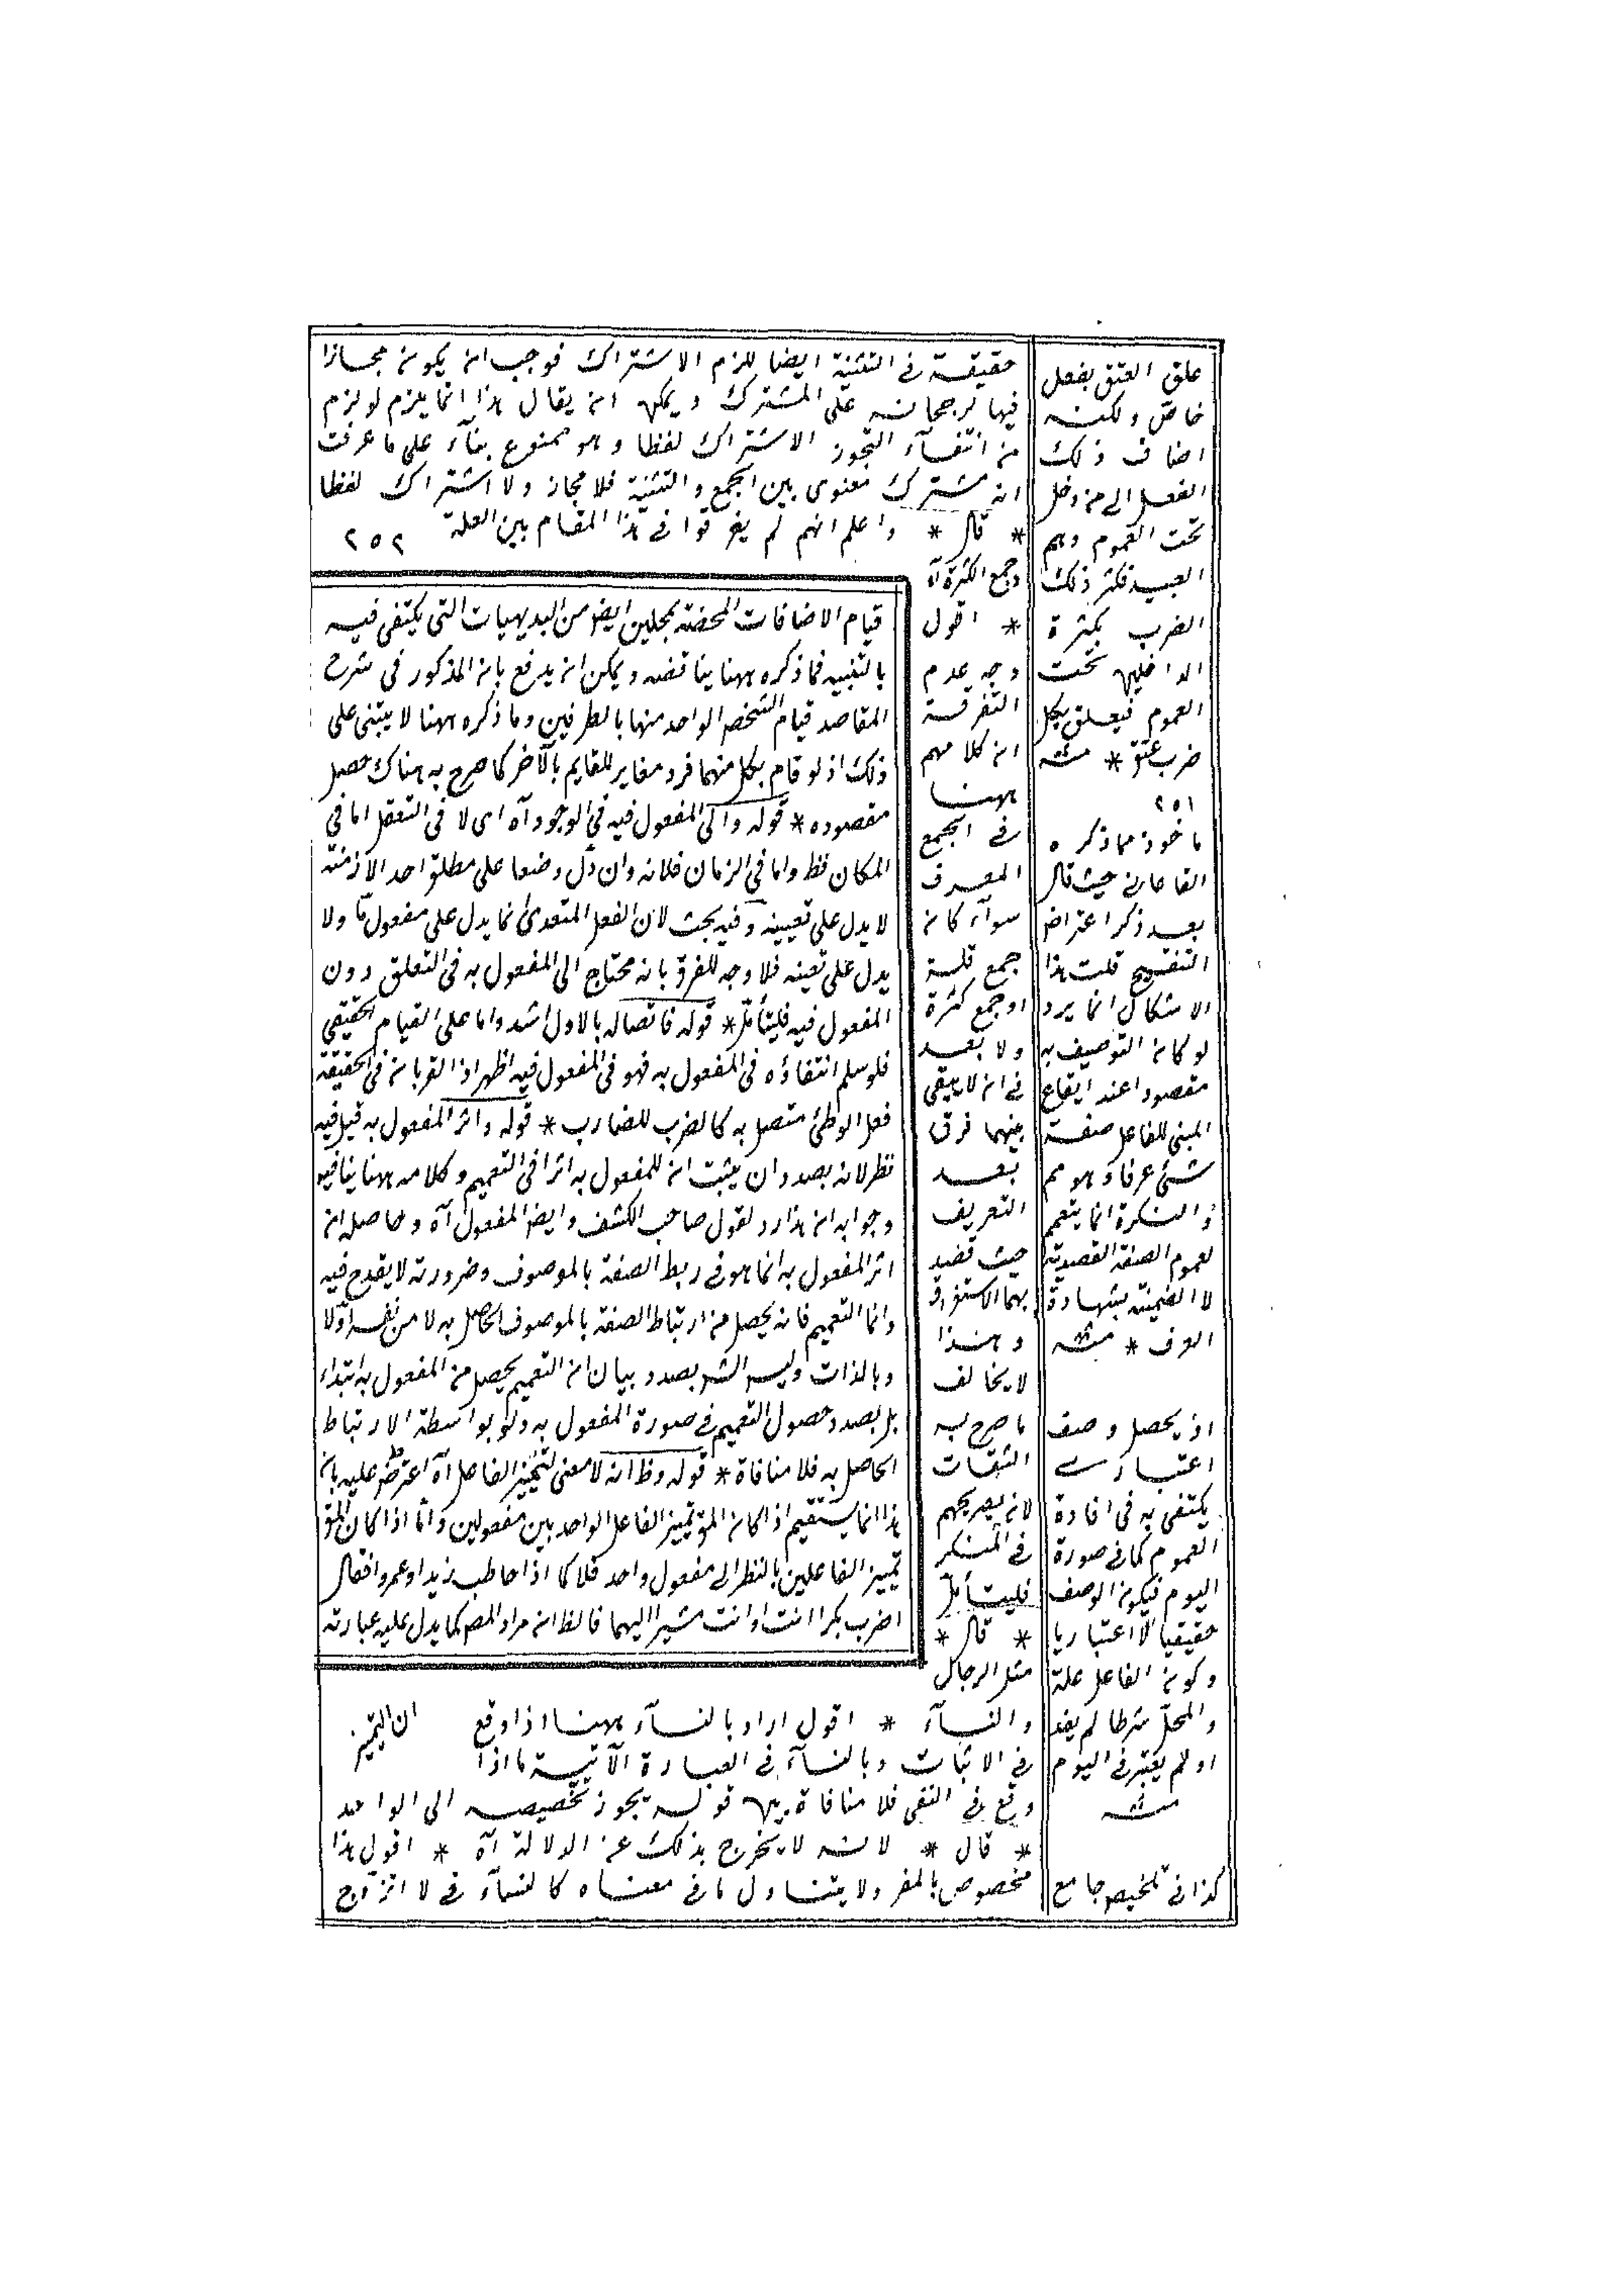 حقيقة فى التثنية ايضا للزم الاشتراك فوجب ان يكون مجازا
فيها لرجحانه على المشترك ويمكن ان يقال هذا انما يلزم لو لزم
من انتفاء التجوز الاشتراك لفظا وهو ممنوع بناء على ما عرفت
انه مشترك معنوى بين الجمع والتثنية فلا مجاز ولا اشتراك لفظا
* قال * واعلم انهم لم يفرقوا فى هذا المقام بين القلة ٢٥٢
وجمع الكثرة آه
* اقول
وجه عدم
التفرقة
ان كلامهم
ههنا
فى الجمع
المعرف
سوآء كان
جمع قلة
او جمع كثرة
ولا بعد
فى ان لا يبقى
بينهما فرق
بعد
التعريف
حيث قصد
بهما الاستغراق
وهذا
لا يخالف
ما صرح به
الثقات
لان تصريحهم
فى المنكر
فليتأمل
* قال *
مثل الرجال
والنسآء * اقول اراد بالنسآء ههنا اذا وقع
فى الاثبات وبالنسآء فى العبارة الآتية ما اذا
وقع فى النفى فلا منافاة بين قوله يجوز تخصيصه الى الواحد
* قال * لانه لا يخرج بذلك عن الدلالة آه * اقول هذا
مخصوص بالمفرد ولا يتناول ما فى معناه كالنسآء فى لا اتزوج
قيام الاضافات المحضة بمحلين ايضا من البديهيات التى يكتفى فيه
بالتنبيه فما ذكره ههنا يناقضه ويمكن ان يدفع بان المذكور فى شرح
المقاصد قيام الشخص الواحد منها بالطرفين وما ذكره ههنا لا يبتنى على
ذلك اذ لو قام بكل منهما فرد مغاير للقايم بالآخر كما صرح به هناك حصل
مقصوده * قوله والى المفعول فيه فى الوجود آه اى لا فى التعقل اما فى
المكان فظ واما فى الزمان فلانه وان دل وضعا على مطلق احد الازمنة
لا يدل على تعيينه وفيه بحث لان الفعل المتعدى انما يدل على مفعول ما ولا
يدل على تعينه فلا وجه للفرق بانه محتاج الى المفعول به فى التعلق دون
المفعول فيه فليتأمل * قوله فاتصاله بالاول اشد واما على القيام الحقيقى
فلو سلم انتفاؤه فى المفعول به فهو فى المفعول فيه اظهر اذ القربان فى الحقيقة
فعل الوطئ متصل به كالضرب للضارب * قوله واثر المفعول به قيل فيه
نظر لانه بصدد ان يثبت ان للمفعول به اثرا فى التعميم وكلامه ههنا ينافيه
وجوابه ان هذا رد لقول صاحب الكشف وايضا المفعول آه وحاصله ان
اثر المفعول به انما هو فى ربط الصفة بالموصوف وضرورته لا يقدح فيه
وانما التعميم فانه يحصل من ارتباط الصفة بالموصوف الحاصل به لا من نفسه اولا
وبالذات وليس الش بصدد بيان ان التعميم يحصل من المفعول به ابتداء
بل بصدد حصول التعميم فى صورة المفعول به ولو بواسطة الارتباط
الحاصل به فلا منافاة * قوله وظ انه لا معنى لتخيير الفاعل آه اعترض عليه بان
هذا انما يستقيم اذا كان المق تمييز الفاعل الواحد بين مفعولين واما اذا كان المق
تمييز الفاعلين بالنظر الى مفعول واحد فلا كما اذا خاطب زيدا وعمروا فقال
اضرب بكرا انت او انت مشيرا اليهما فالظ ان مراد المص كما يدل عليه عبارته
ان التميز
علق العتق بفعل
خاص ولكنه
اضاف ذلك
الفعل الى من دخل
تحت العموم وهم
العبيد فكثر ذلك
الضرب بكثرة
الداخلين تحت
العموم فيعلق بكل
ضرب عتق * منه
٢٥١
ماخوذ مما ذكره
القاعانى حيث قال
بعد ذكر اعتراض
التنقيح قلت هذا
الاشكال انما يرد
لو كان التوصيف به
مقصودا عند ايقاع
المبنى للفاعل صفة
شئ عرفا وهو مم
والنكرة انما يتعمم
لعموم الصفة القصدية
لا الضمنية بشهادة
العرف * منه
اذ يحصل وصف
اعتبارى
يكتفى به فى افادة
العموم كما فى صورة
اليوم فيكون الوصف
حقيقيا لا اعتباريا
وكون الفاعل علة
والمحل شرطا لم يفد
او لم يعتبر فى اليوم
منه
كذا فى تلخيص جامع